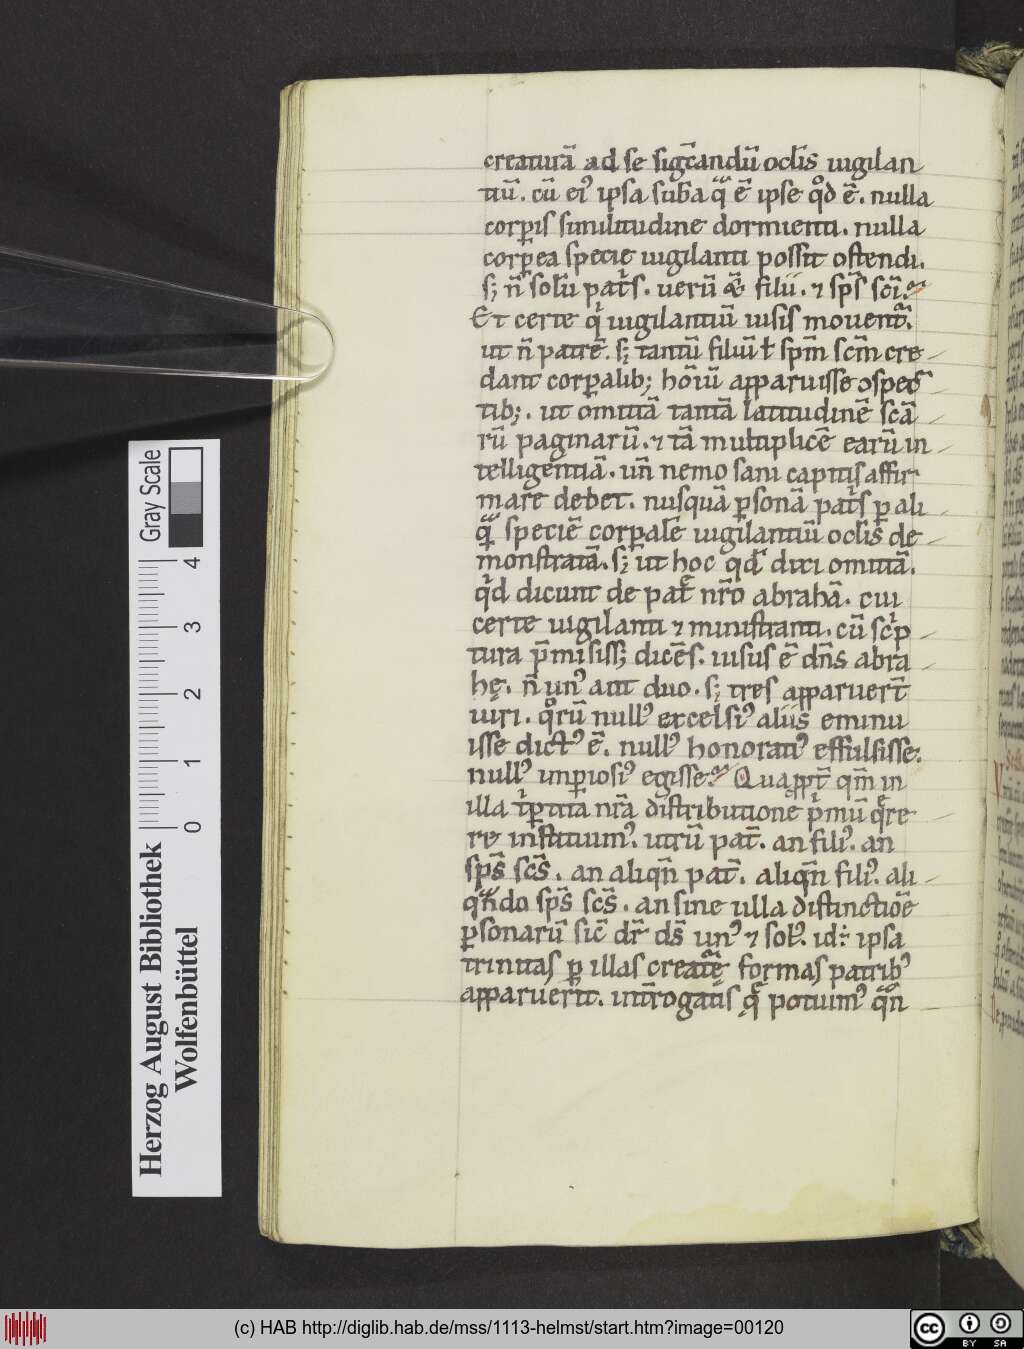 creaturā ad se sigc̄andū ocl̄is uigilan
tiū. cū ei' ipsa suba qͣ ē ipse qͦd ē. nulla
corꝑis similitudine dormienti. nulla
corꝑea specię uigilanti possit ostendi.
s; n̄ solū pat̄s. uerū &̄ filii. ⁊ sp̄s sc̄i.
Et certe qͥ uigilantiū uisis mouent̄.
ut n̄ patrē. s; tantū filiū ł sp̄m sc̄m cre
dant corꝑalib; hoīū apparuisse ↄspec
tib;. ut omittā tantā latitudinē sc̄a
rū paginarū. ⁊ tā multiplicē earū in
telligentiā. uñ nemo sani capitis affir
mare debet. nusquā ꝑsonā pat̄s ꝑ ali
qͣ speciē corꝑalē uigilantiū ocl̄is de
monstratā. s; ut hoc qd̄ dixi omittā.
qͥd dicunt de pat̄ nr̄o abrahā. cui
certe uigilanti ⁊ ministranti. cū scͥp
tura p̄misiss; dicēs. uisus ē dn̄s abra
hę. n̄ un' aut duo. s; tres apparuer̄t
uiri. qͦrū null' excelsi' aliis eminu
isse dict' ē. null' honorati' effulsisse.
null' inꝑiosi' egisse. Quaꝓpt̄ qm̄ in
illa tͥꝑtita nr̄a distributione pͥmū q̄re
re instituim'. utrū pat̄. an fili'. an
sp̄s sc̄s. an aliqn̄ pat̄. aliqn̄ fili'. ali
qn̄do sp̄s sc̄s. an sine ulla distinctiōe
ꝑsonarū sic̄ dr̄ ds̄ un' ⁊ sol'. id.÷ ipsa
trinitas ꝑ illas creatę formas patrib'
apparuer̄it. int̄rogatis q̄ potuim' qͣn
Herzog August Bibliothek
Wolfenbüttel
Gray Scale
0 1 2 3 4
(c) HAB http://diglib.hab.de/mss/1113-helmst/start.htm?image=00120
cc BY SA